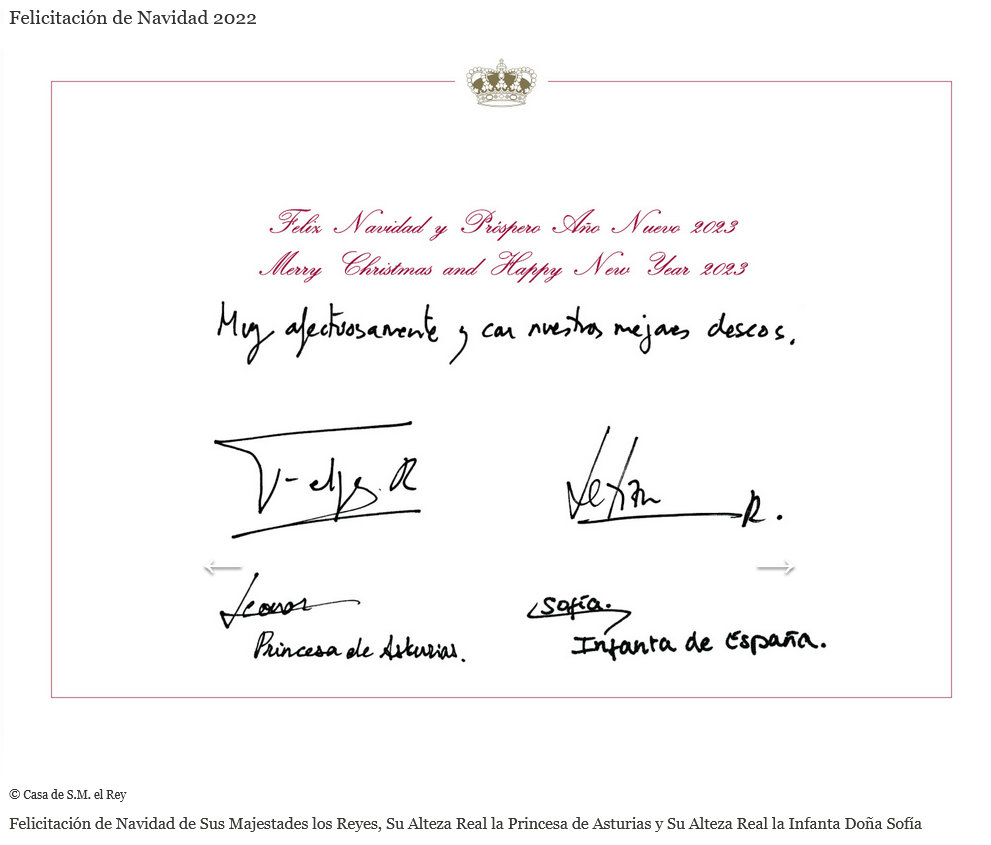 Felicitación de Navidad 2022
Feliz Navidad y Próspero Año Nuevo 2023
Merry Christmas and Happy New Year 2023
Muy afectuosamente y con nuestros mejores deseos.
Felipe R
Letizia R.
Leonor
Princesa de Asturias.
Sofía.
Infanta de España.
© Casa de S.M. el Rey
Felicitación de Navidad de Sus Majestades los Reyes, Su Alteza Real la Princesa de Asturias y Su Alteza Real la Infanta Doña Sofía